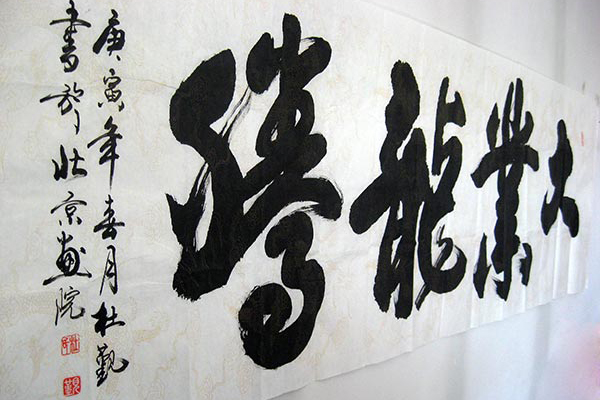 大業龍騰
庚寅年春月杜
書於北京畫院